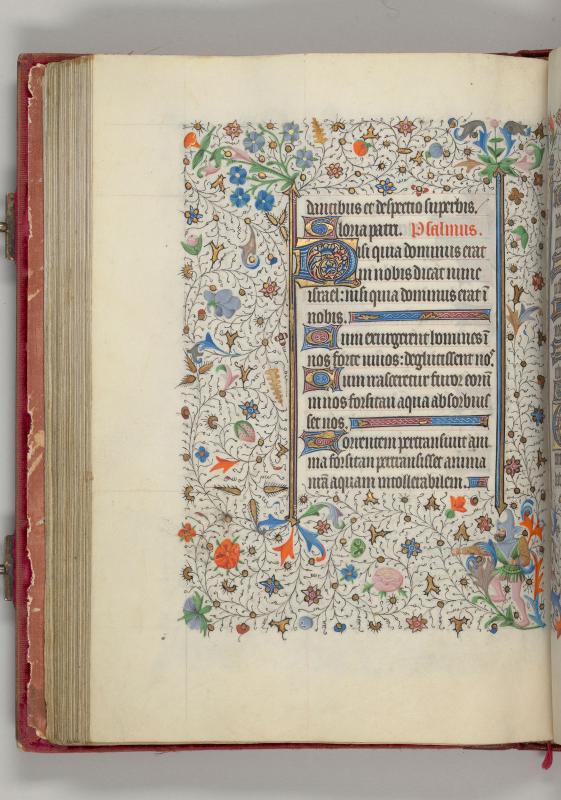 dantibus et despectio superbis.
Gloria patri. Psalmus.
Nisi quia dominus erat
in nobis dicat nunc
israel: nisi quia dominus erat ī
nobis.
Cum exurgerent homines ī
nos forte uiuos: deglutissent nos
Cum irasceretur furor eorū
in nos forsitan aqua absorbuis
set nos.
Torrentem pertransiuit ani
ma forsitan pertransisset anima
nrā aquam intollerabilem.